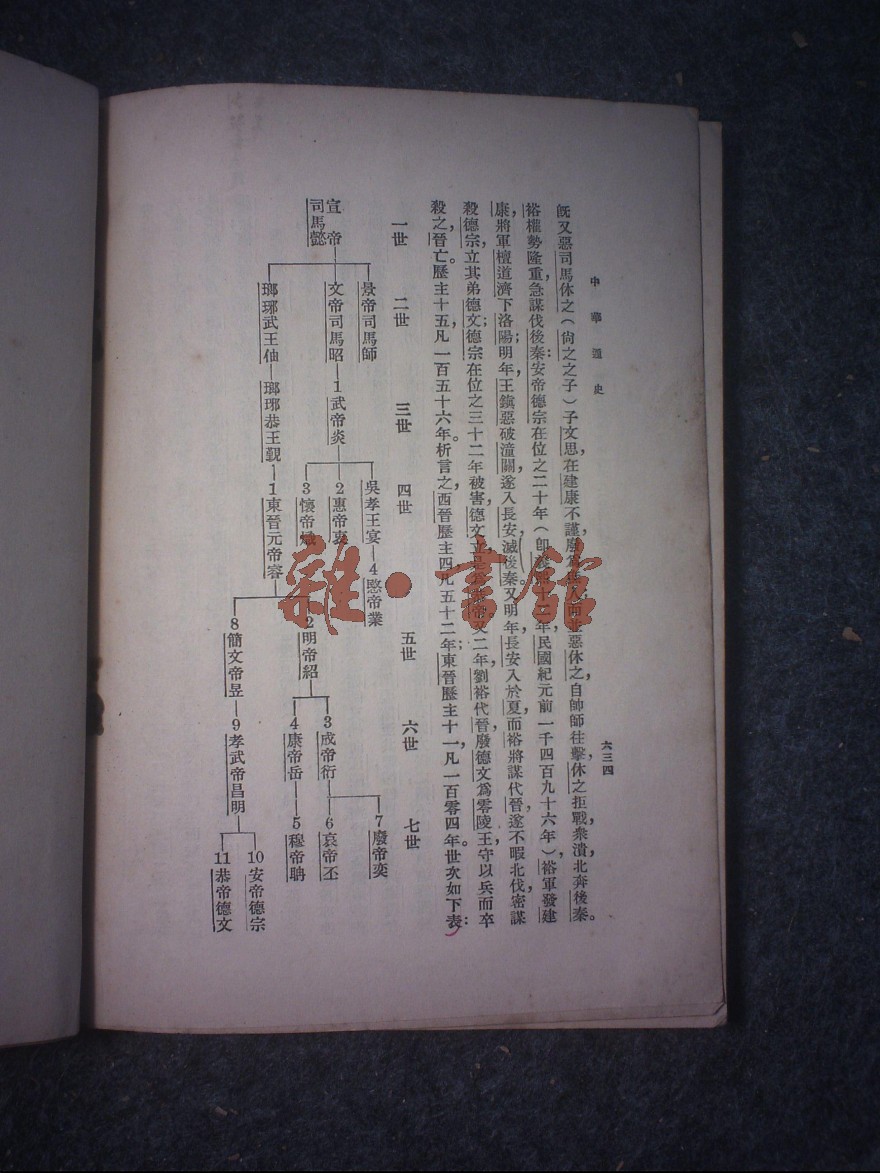 中華通史
六三四
旣又惡司馬休之(尙之之子)子文思,在建康不謹,廢爲庶人,而並惡休之,自帥師往擊,休之拒戰,衆潰,北奔後秦。
裕權勢隆重,急謀伐後秦:安帝德宗在位之二十年(卽十二年,民國紀元前一千四百九十六年),裕軍發建
康,將軍檀道濟下洛陽;明年,王鎭惡破潼關,遂入長安,滅後秦。又明年,長安入於夏,而裕將謀代晉,遂不暇北伐,密謀
殺德宗,立其弟德文;德宗在位之三十二年被害,德文立,是爲恭帝。又二年,劉裕代晉,廢德文爲零陵王,守以兵而卒
殺之,晉亡。歷主十五,凡一百五十六年。析言之,西晉歷主四,凡五十二年;東晉歷主十一,凡一百零四年。世次如下表:
一世 二世 三世 四世 五世 六世 七世
宣帝司馬懿
景帝司馬師
文帝司馬昭—1武帝炎
吳孝王宴—4愍帝業
2惠帝衷
3懷帝熾
瑯琊武王伷—瑯琊恭王覲—1東晉元帝容
2明帝紹
3成帝衍
7廢帝奕
6哀帝丕
4康帝岳—5穆帝聃
8簡文帝昱—9孝武帝昌明
10安帝德宗
11恭帝德文
雜·書館